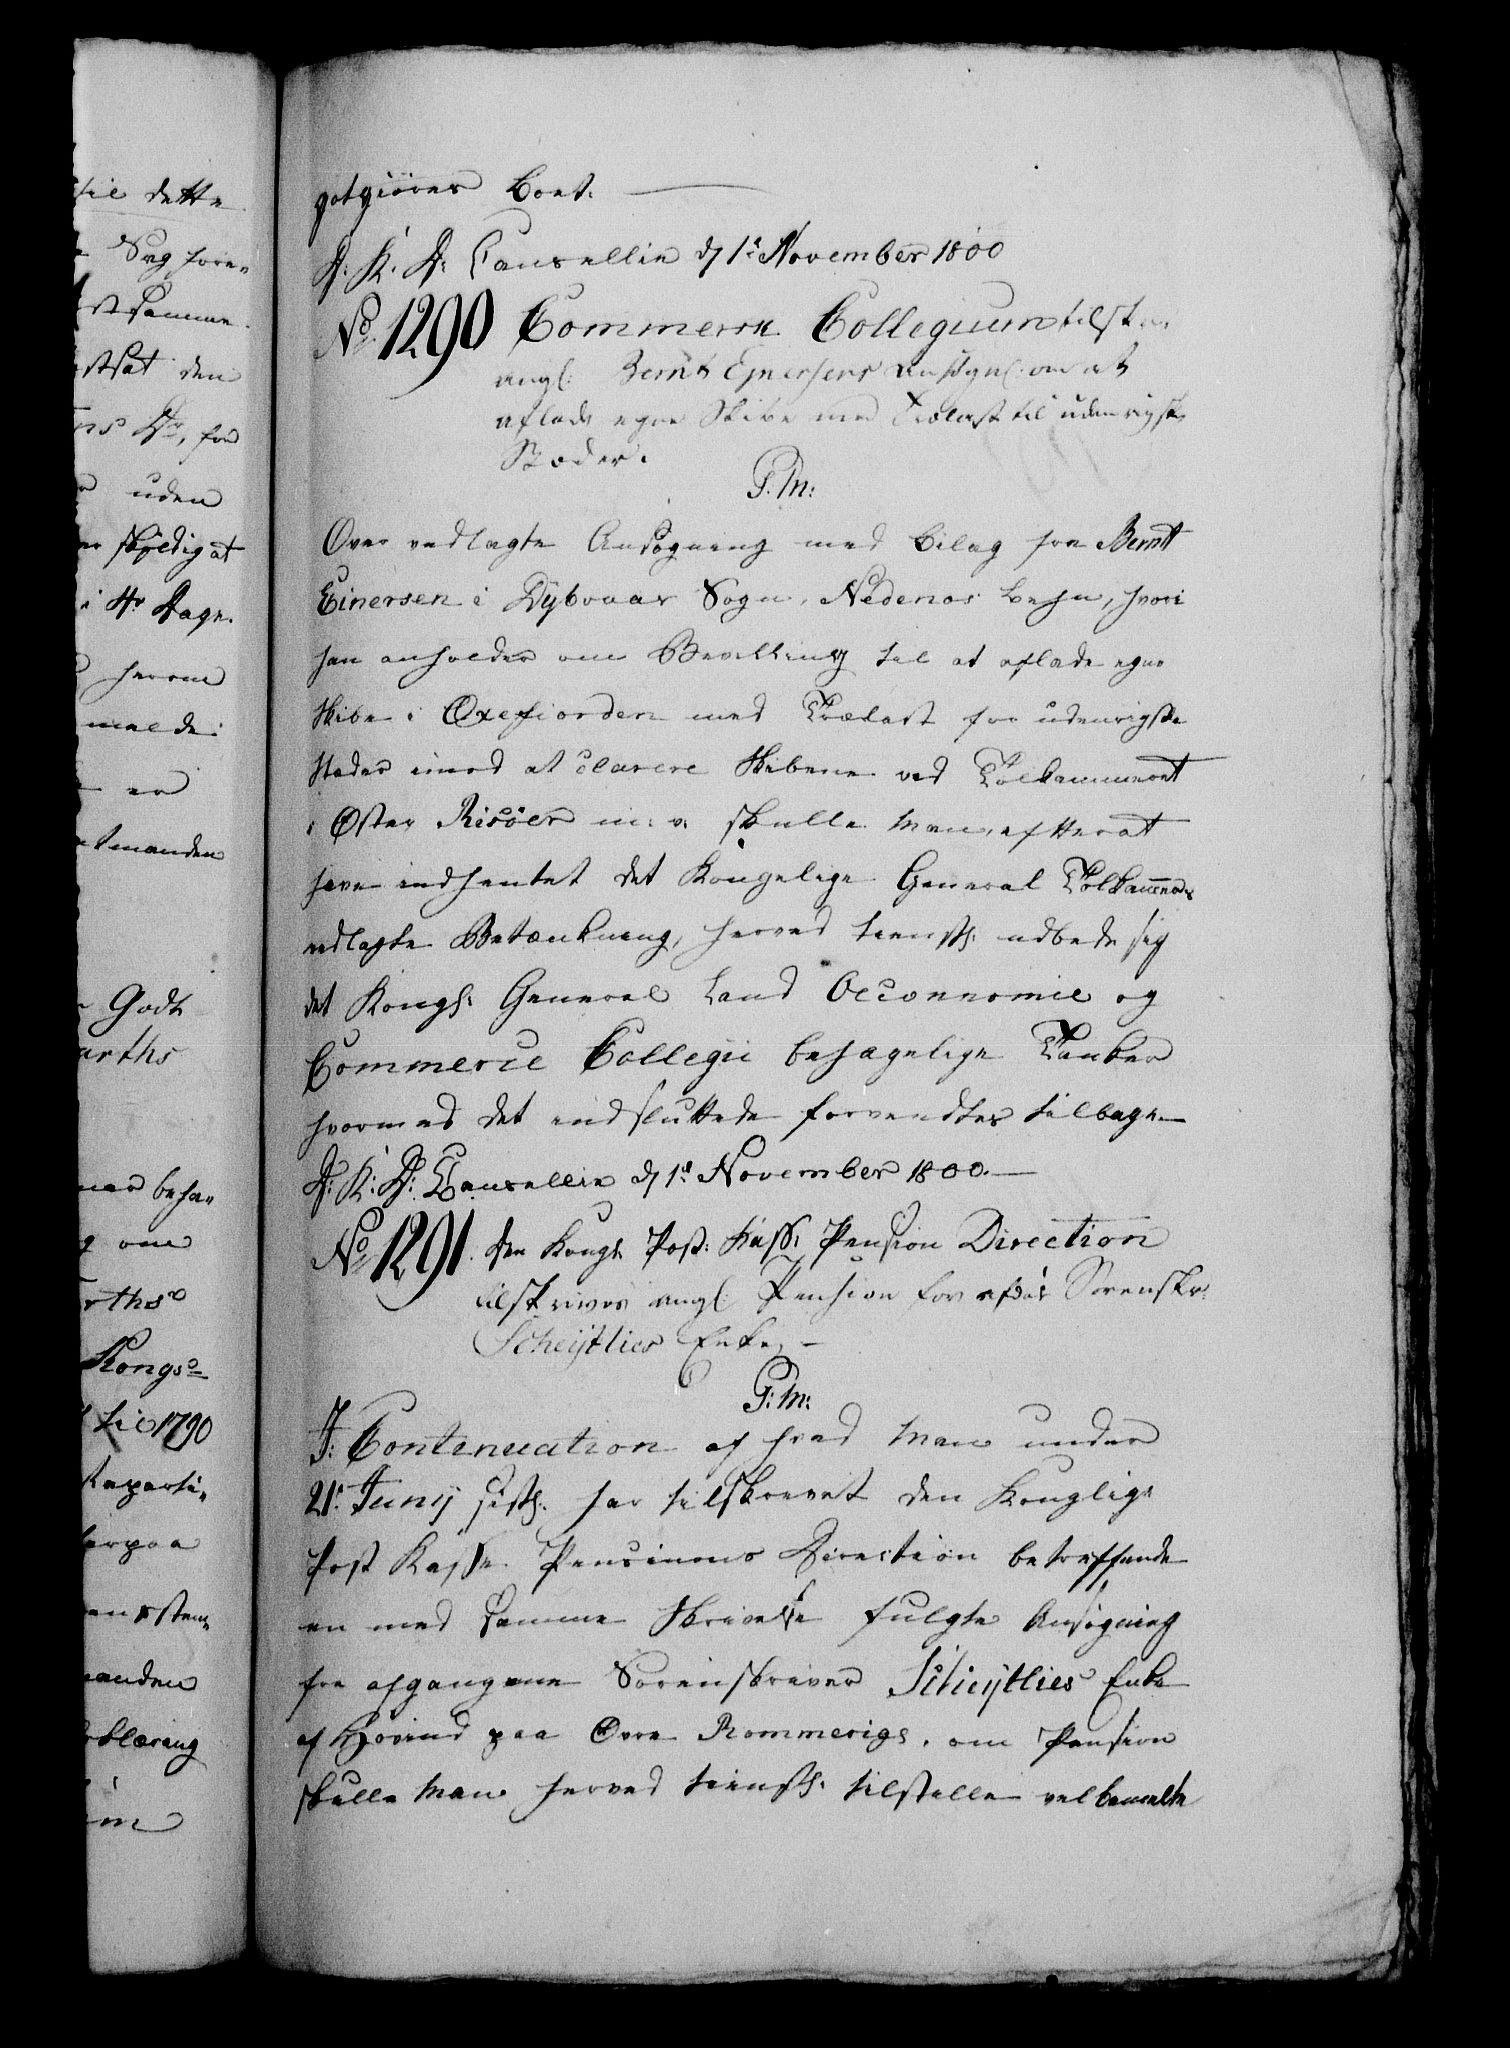 til dette
Sag fore-
samme
stsat den
ns Dr, for
uden
er skyldig at
i 4r Dage.
herom
melde:
er
tmanden
Godt
arths
ner beha-
g om
rths
Kongs-
til 1790
Reparti-
herpaa
anden
rklæring
im
godtgiøres Boet.
D: K: D: Cancellie d 1t November 1800
No 1290 Commerce Collegium tilskr.
angl: Bernt Ejnersens Ansøgn: om at
aflade egne Skibe med Trælast til udenrigske
Stæder.
P. M:
Over vedlagte Ansøgning med Bilag fra Bernt
Einersen i Dybvaag Sogn, Nedenæs Lehn, hvori
han anholder om Bevilling til at aflade egne
Skibe i Oxefiorden med Trælast for udenrigske
Stæder imod at clarere Skibene ved Toldkammeret
i Øster Risöer m: v: skulle man, efterat
have indhentet det Kongelige General Toldkammers
vedlagte Betænkning, herved tienstl: udbede sig
det Kongl: General Land Oeconnomie og
Commerce Collegii behagelige Tanker
hvormed det indsluttede forventes tilbage.
D: K: D: Cancellie d 1t November 1800.
No 1291. Den Kongl Post: Kass: Pension Direction
tilskrives angl: Pension for afdøe Sorenskr:
Scheijtlies Enke. -
P: M:
I Contenuation af hvad man under
21t Junij sidstl: har tilskrevet den Konglige
Post Kasse Pensions Direction betreffende
en med samme Skrivelse fulgte Ansøgning
fra afgangene Sorenskriver Scheijtlies Enke
af Hovind paa Øvre Rommerige, om Pension
skulle man herved tienstl: tilstille velbemelte